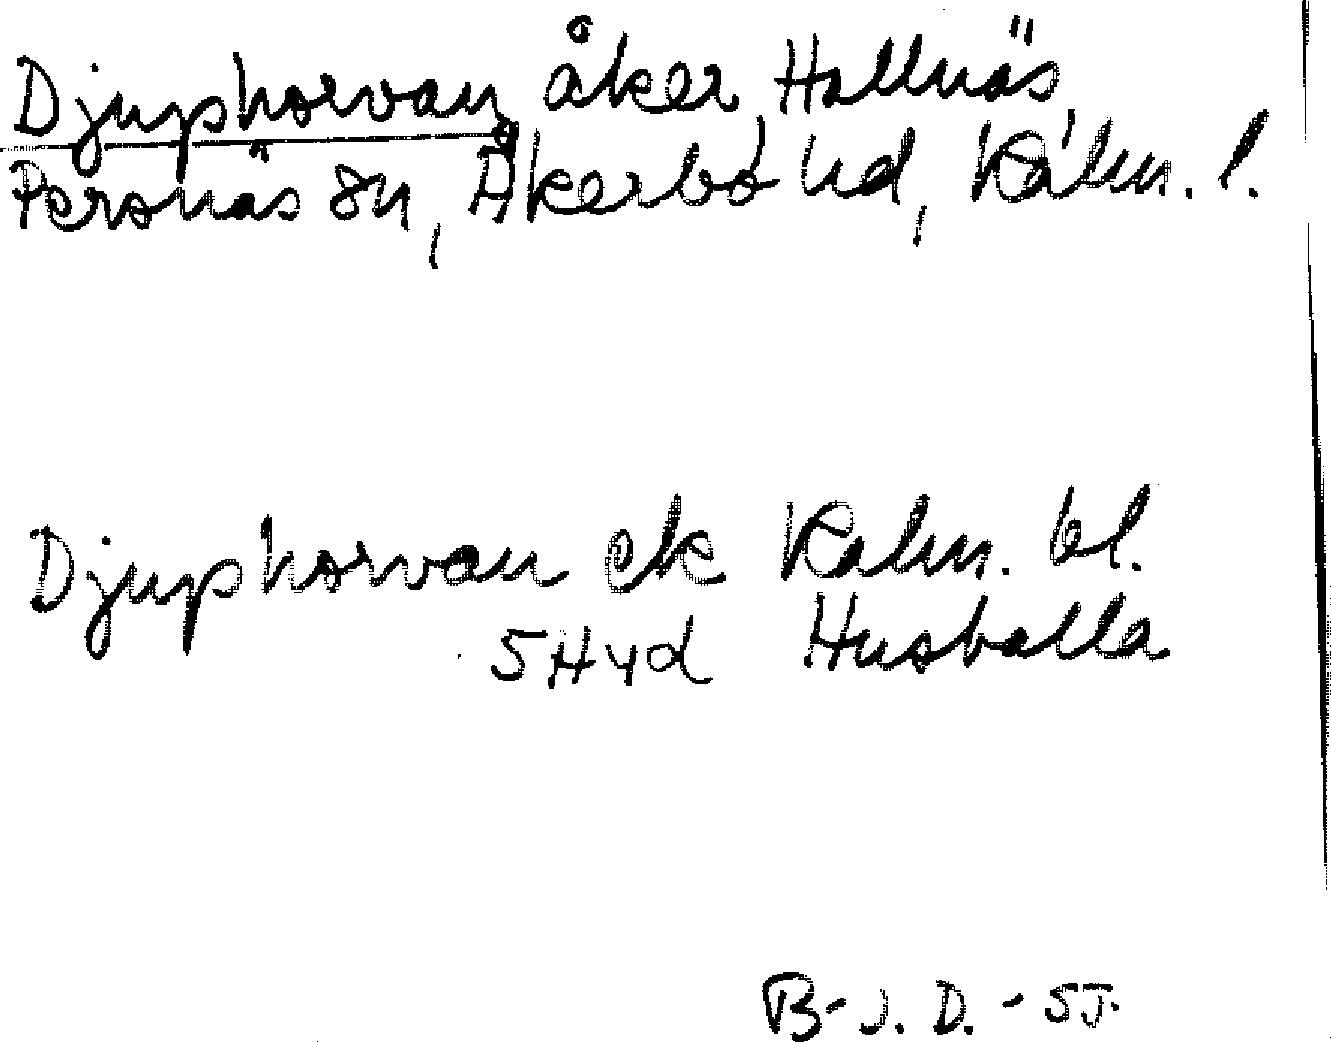 Djuphorvan, åker, Hallnäs,
Persnäs sn, Åkerbo hd, Kalm. l.
Djuphorvan ek Kalm. bl.
5Hyd Husvalla
B-J. D. - SJ.